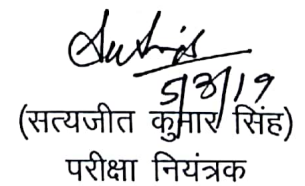 5/8/19
(सत्यजीत कुमार सिंह)
परीक्षा नियंत्रक